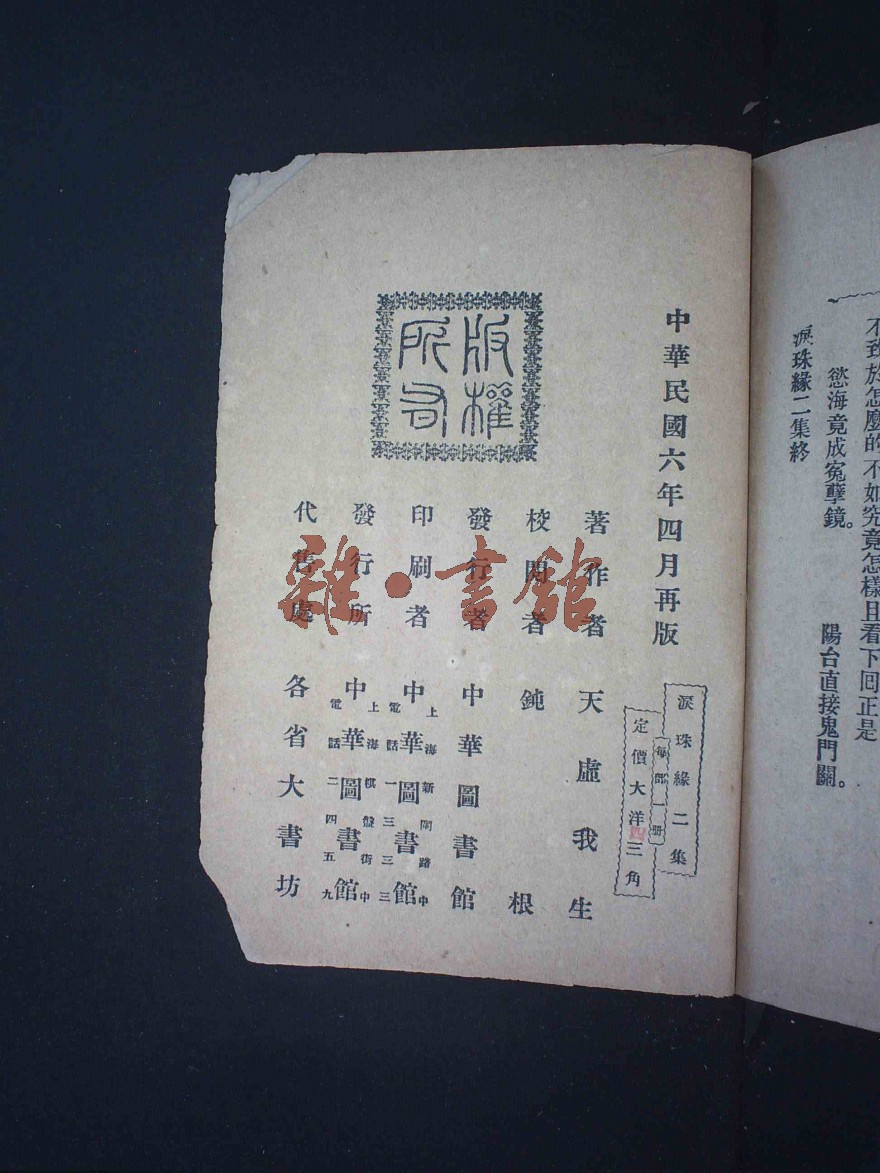 不致於怎麼的不如究竟怎樣且看下回正是
慾海竟成寃孽鏡。 陽台直接鬼門關。
淚珠緣二集終
中華民國六年四月再版
淚珠緣二集
每部一册
定價大洋四三角
版權所有
著作者 天虛我生
校閱者 鈍根
發行者 中華圖書館
印刷者 上海新閘路中 中華圖書館 電話一三三三
發行所 上海棋盤街中 中華圖書館 電話二四五九
代售處 各省大書坊
雜·書館